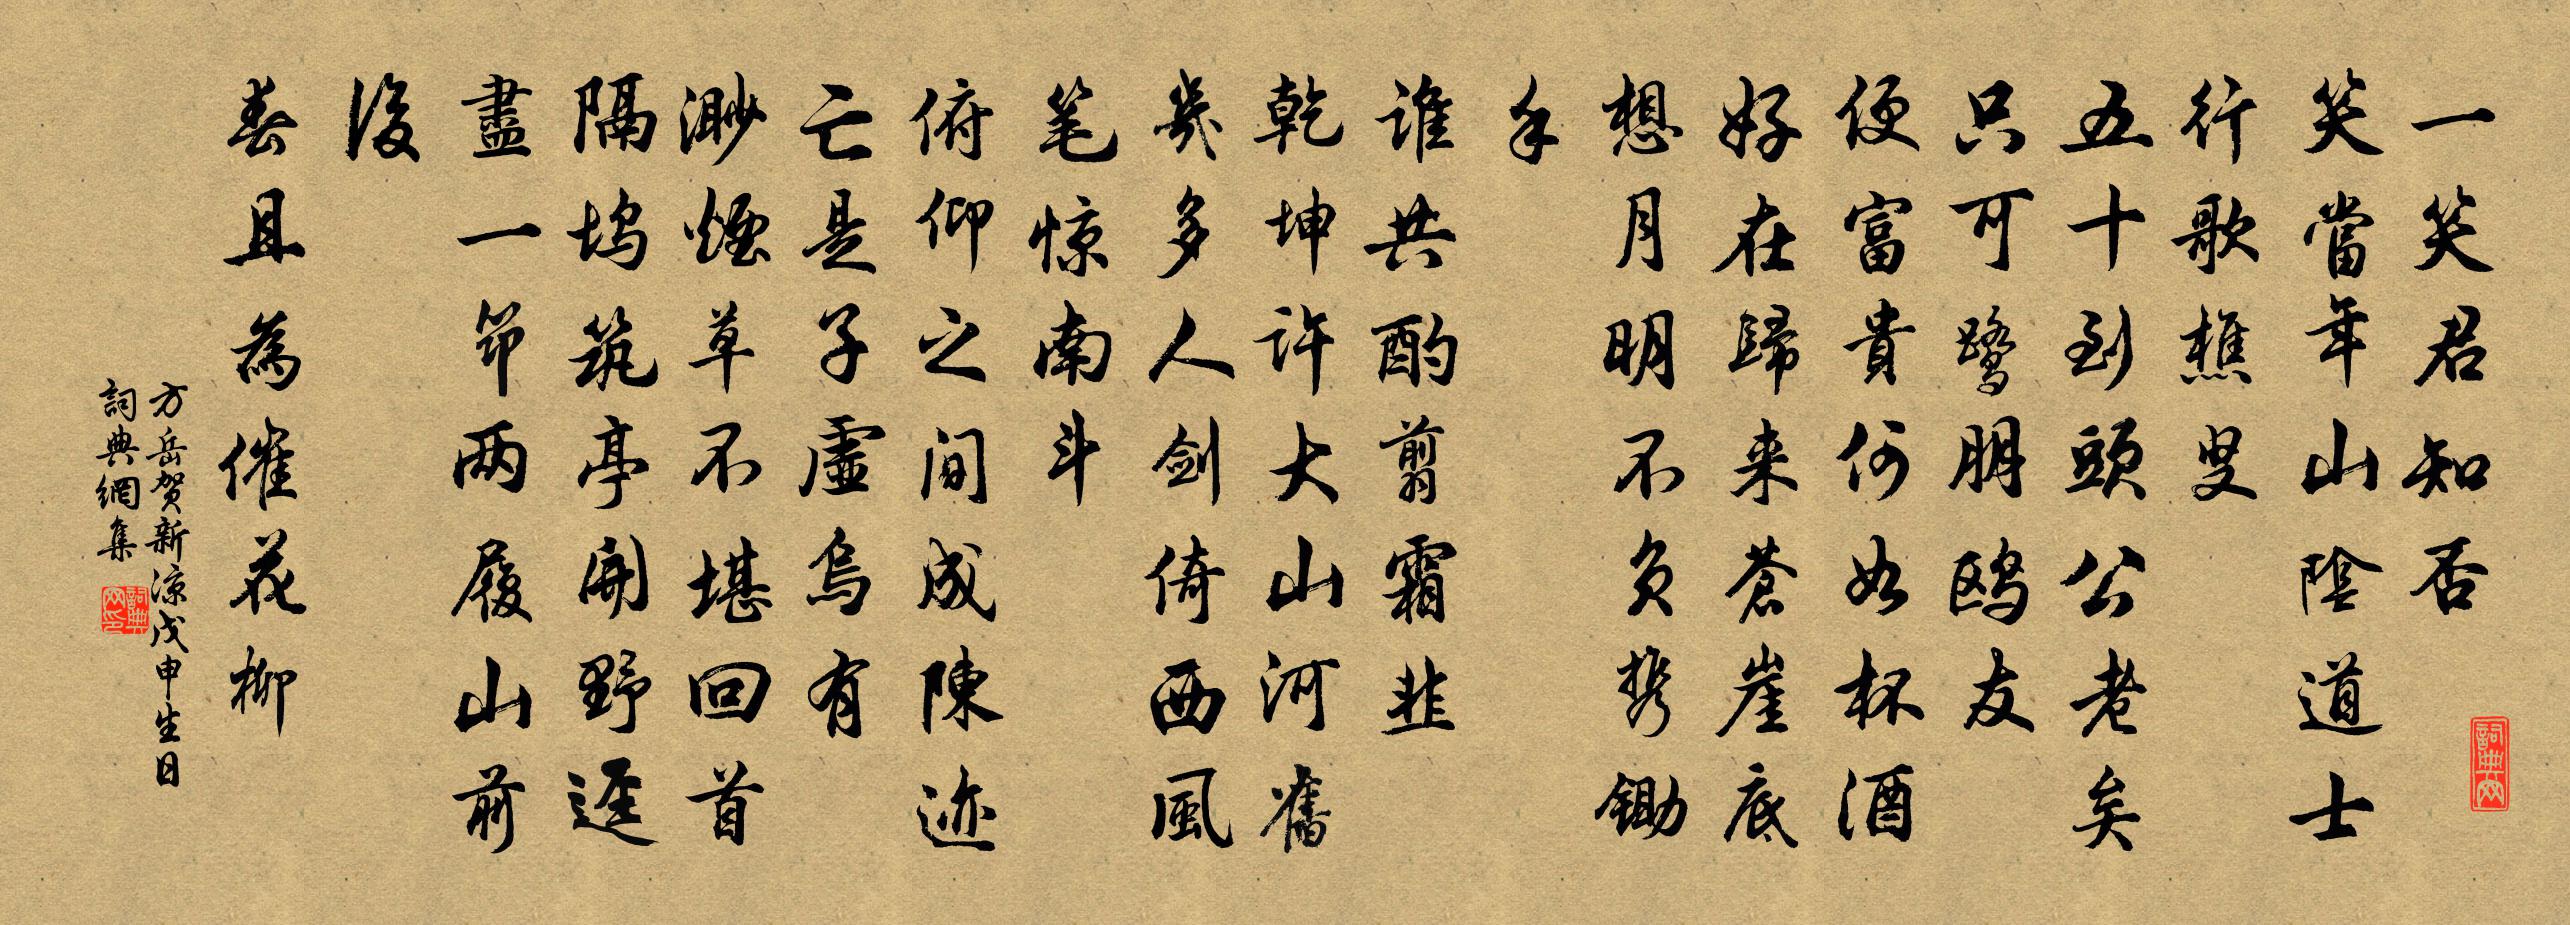 一笑君知否
笑當年山陰道士
行歌樵叟
五十到頭公老矣
只可鷺朋鷗友
便富貴何如杯酒
好在歸來蒼崖底
想月明不負携鋤
手
誰共酌翦霜韭
乾坤許大山河舊
幾多人劍倚西風
笔惊南斗
俯仰之间成陳迹
亡是子虛烏有
渺煙草不堪回首
隔塢筑亭開野逕
盡一筇兩屐山前
後
春且為催花柳
方岳贺新凉戊申生日
詞典網集
詞典网
詞典网印